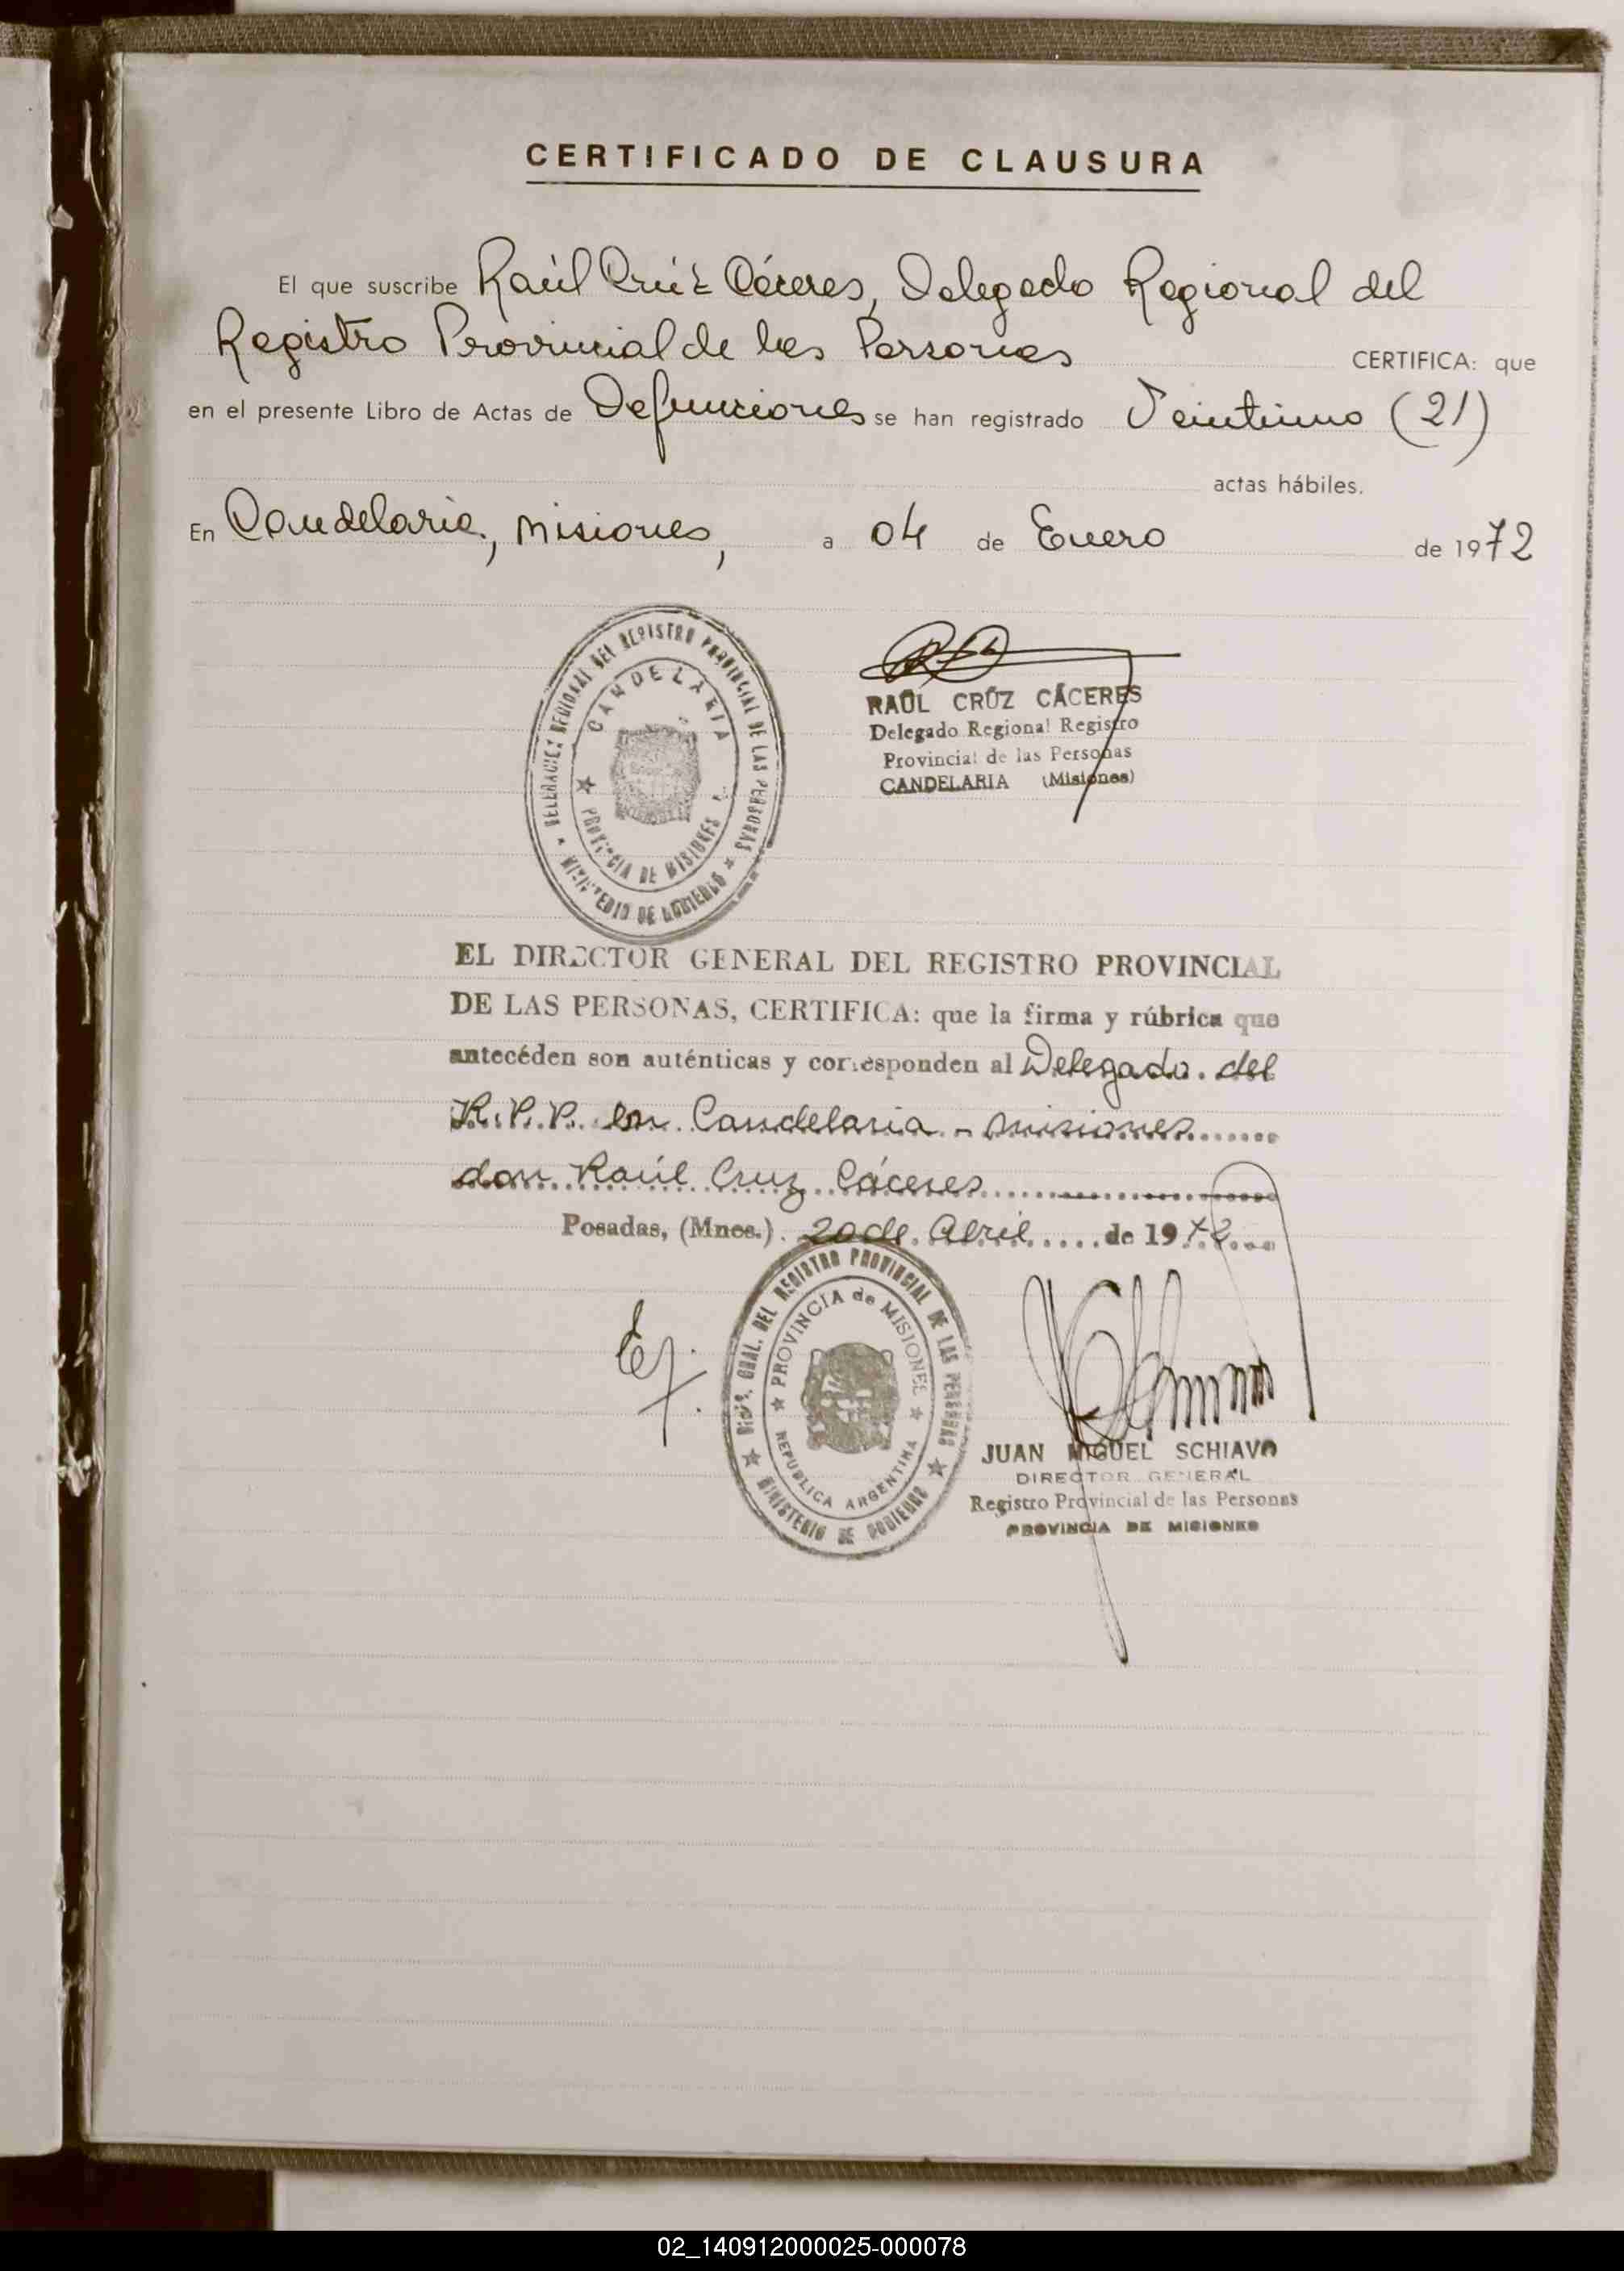 CERTIFICADO DE CLAUSURA
El que suscribe Raúl Crúz Cáceres, Delegado Regional del
Registro Provincial de las Personas CERTIFICA: que
en el presente Libro de Actas de Defunciones se han registrado Veintiuno (21)
actas hábiles.
En Candelaria, Misiones, a 04 de Enero de 1972
DELEGACION REGIONAL DEL REGISTRO PROVINCIAL DE LAS PERSONAS
MINISTERIO DE GOBIERNO
CANDELARIA
PROVINCIA DE MISIONES
RAÚL CRÚZ CÁCERES
Delegado Regional Registro
Provincial de las Personas
CANDELARIA (Misiones)
EL DIRECTOR GENERAL DEL REGISTRO PROVINCIAL
DE LAS PERSONAS, CERTIFICA: que la firma y rúbrica que
antecéden son auténticas y corresponden al Delegado del
R.P.P. en Candelaria - Misiones
don Raúl Cruz Cáceres
Posadas, (Mnes.) 20 de Abril de 1972
DIREC. GRAL. DEL REGISTRO PROVINCIAL DE LAS PERSONAS
MINISTERIO DE GOBIERNO
PROVINCIA de MISIONES
REPUBLICA ARGENTINA
JUAN MIGUEL SCHIAVO
DIRECTOR GENERAL
Registro Provincial de las Personas
PROVINCIA DE MISIONES
02_140912000025-000078